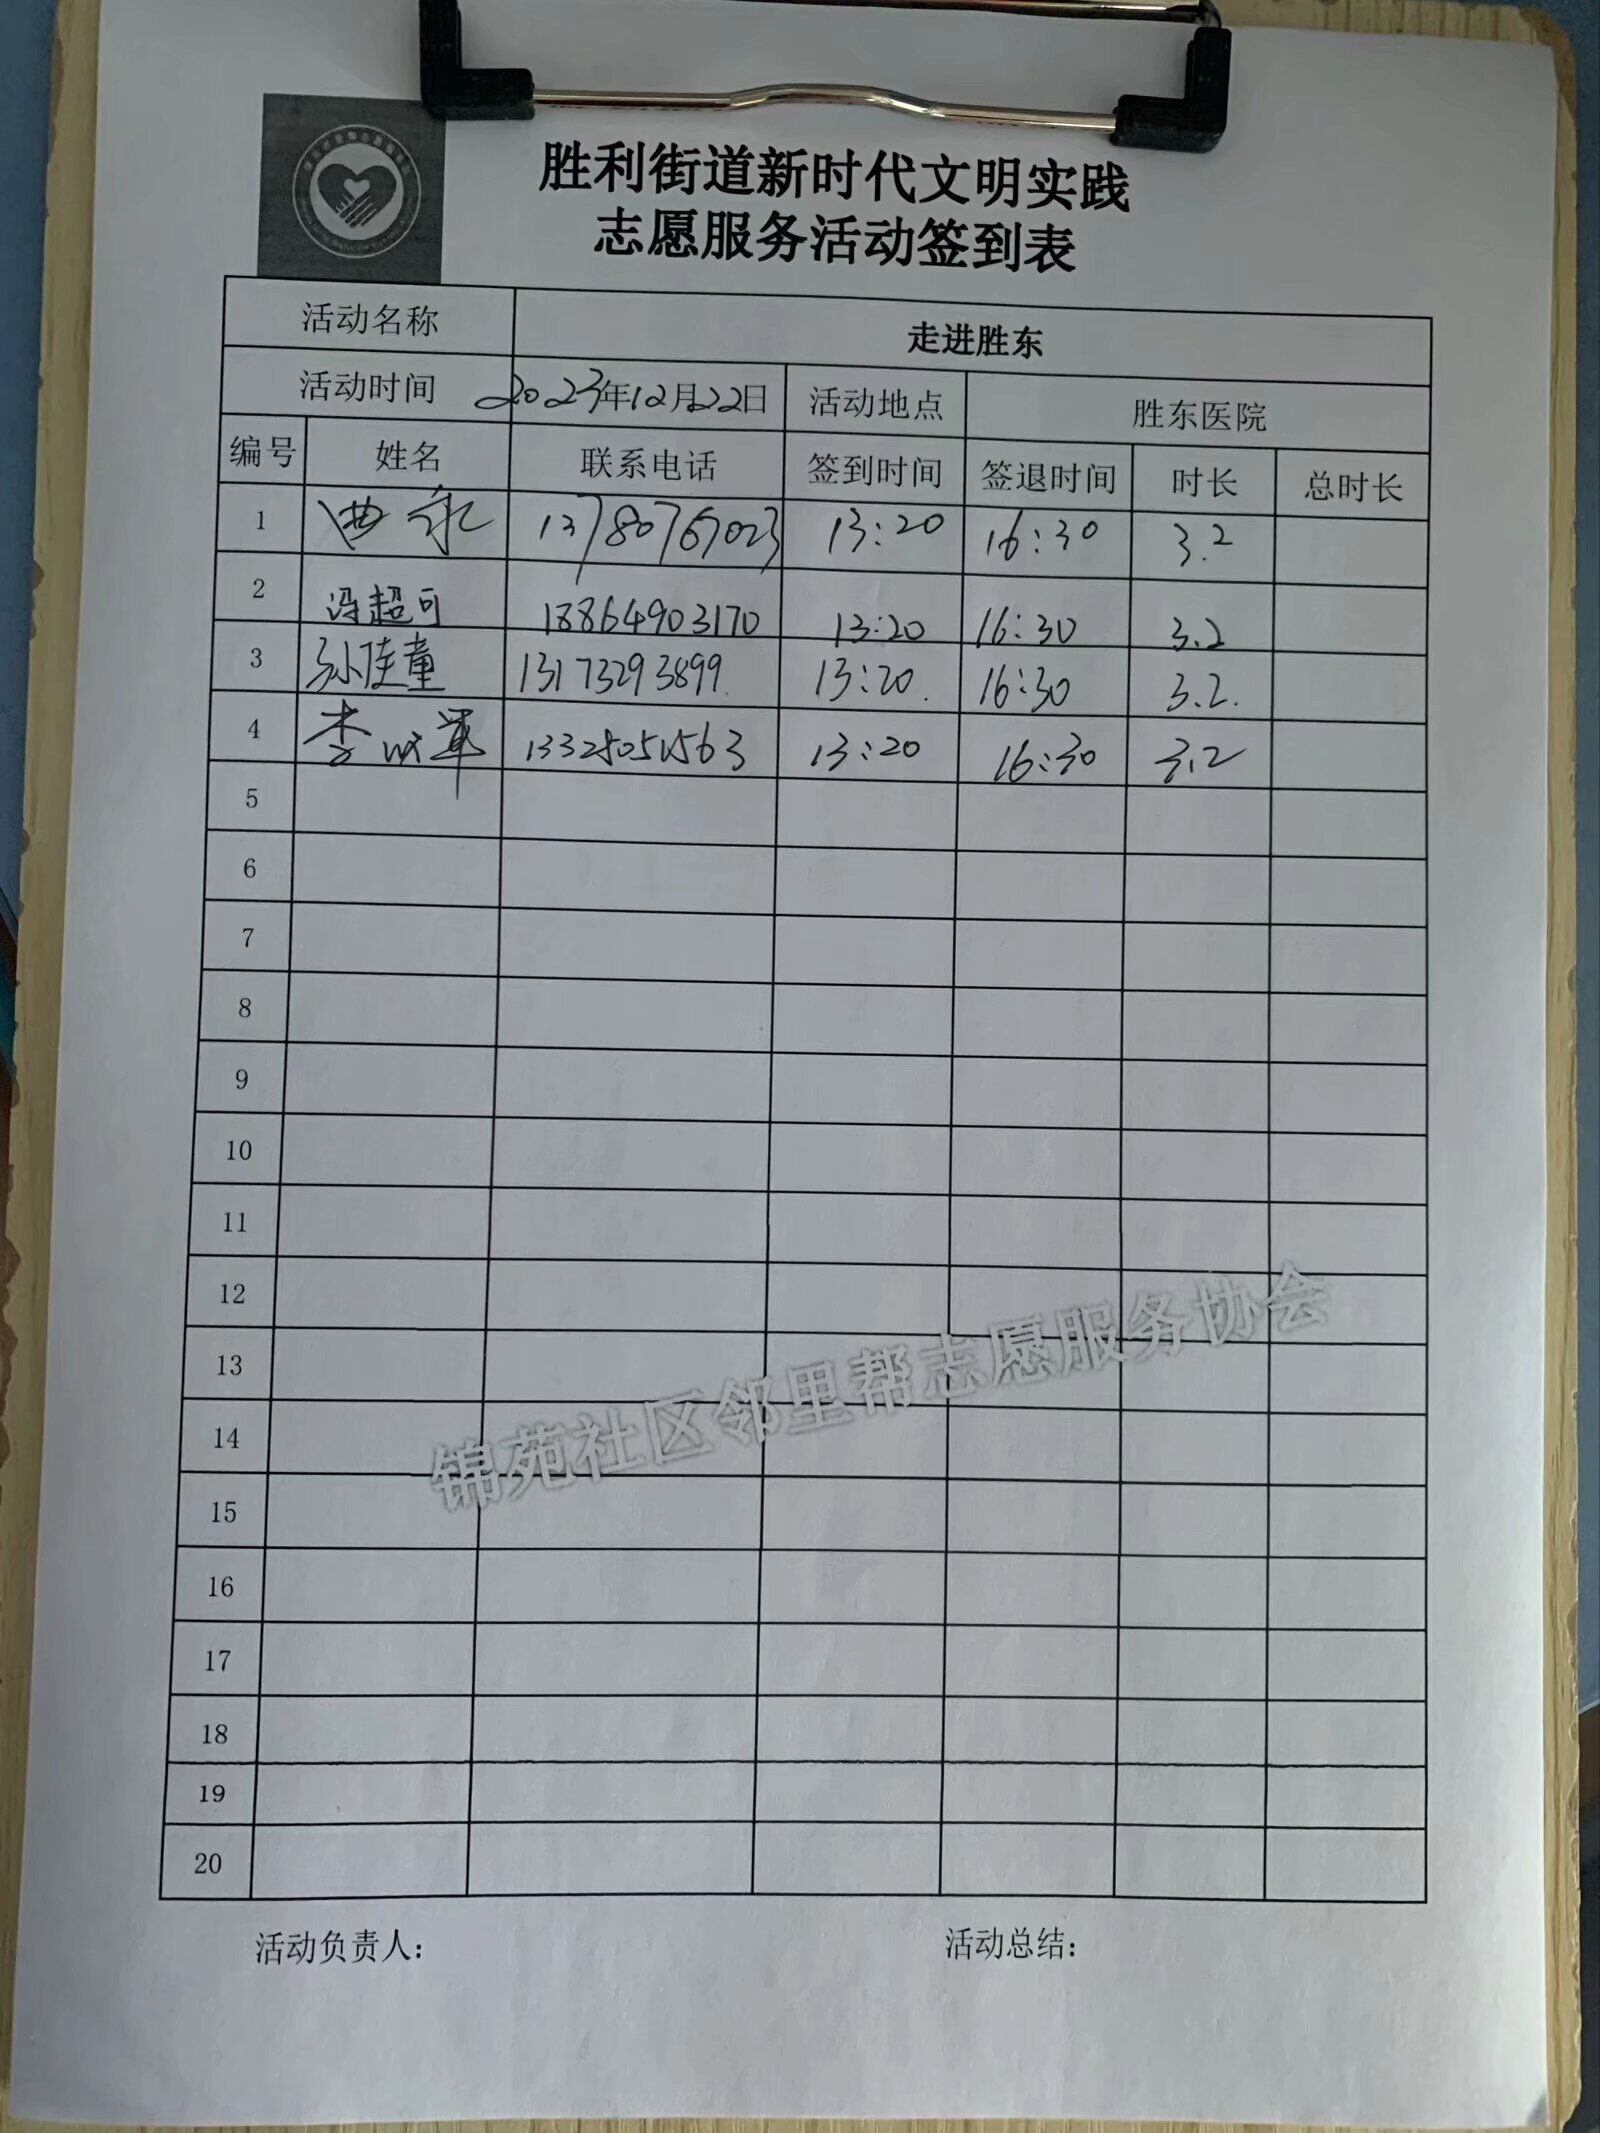 胜利街道新时代文明实践
志愿服务活动签到表
活动名称 走进胜东
活动时间 2023年12月22日 活动地点 胜东医院
编号 姓名 联系电话 签到时间 签退时间 时长 总时长
1 曲永 13780767023 13:20 16:30 3.2
2 冯超可 18864903170 13:20 16:30 3.2
3 孙佳童 13173293899 13:20 16:30 3.2
4 李 13:20 16:30 3.2
5
6
7
8
9
10
11
12
13
14
15
16
17
18
19
20
锦苑社区邻里帮志愿服务协会
活动负责人: 活动总结: